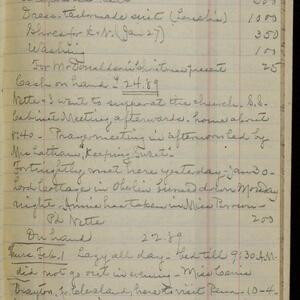 Dress - tailormade suit (Lorschin) 10 00
Shoes for K.N. (Jan 27) 3 50
Washing 1 00
For McDonaldson's Christmas present 25
Cash on hand $24.89
Nette & I went to supper at the church. S.S.
Cabinet Meeting afterwards - home about
8:40 - Prayer meeting in afternoon led by
Mrs Latham, "Keeping Sweet"
Fortnightly met here yesterday - Jan 30 -
Lord Cottage in Oberlin burned down Monday
night - Annie has taken in Miss Brown -
Pd Nette 2 00
On hand 22.89
Thurs. Feb. 1 Lazy all day - Bed till 9:30 A.M.
did not go out in evening - Miss Carrie
Drayton, of Cleveland, here to visit Penn. 10-4-